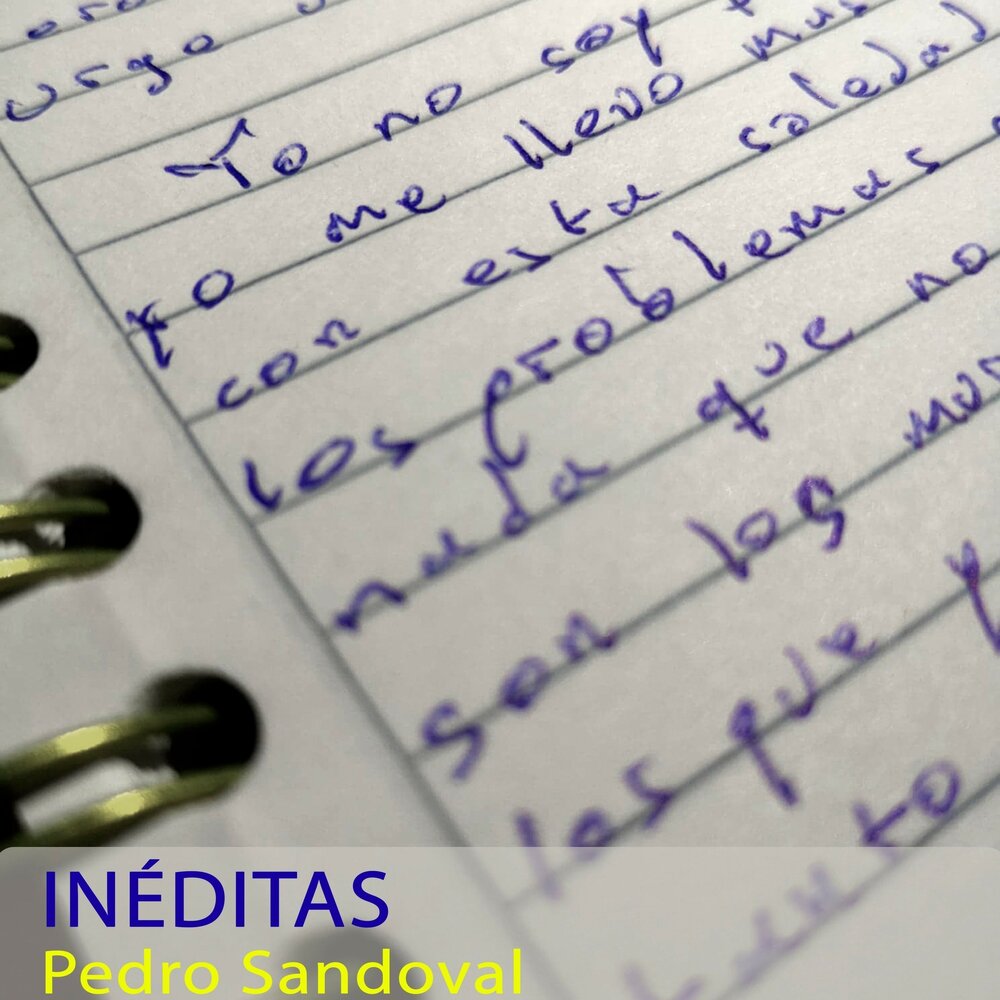 urgo
Yo no soy
yo me llevo mus
con esta soledad
los problemas
nada que no
son los mor
las que
INÉDITAS
Pedro Sandoval